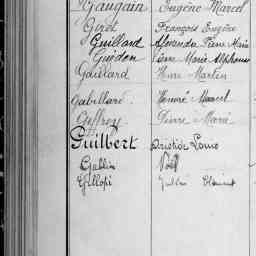 Gaugain Eugène Marcel
Giret François Eugène
Guillard Alexandre Pierre Marie
Guédon Pierre Marie Alphonse
Gaillard Henri Martin
Gabillard Honoré Marcel
Geffroy Pierre Marie
Guilbert Aristide Louis
Gablin Noël
Gillopé Clément